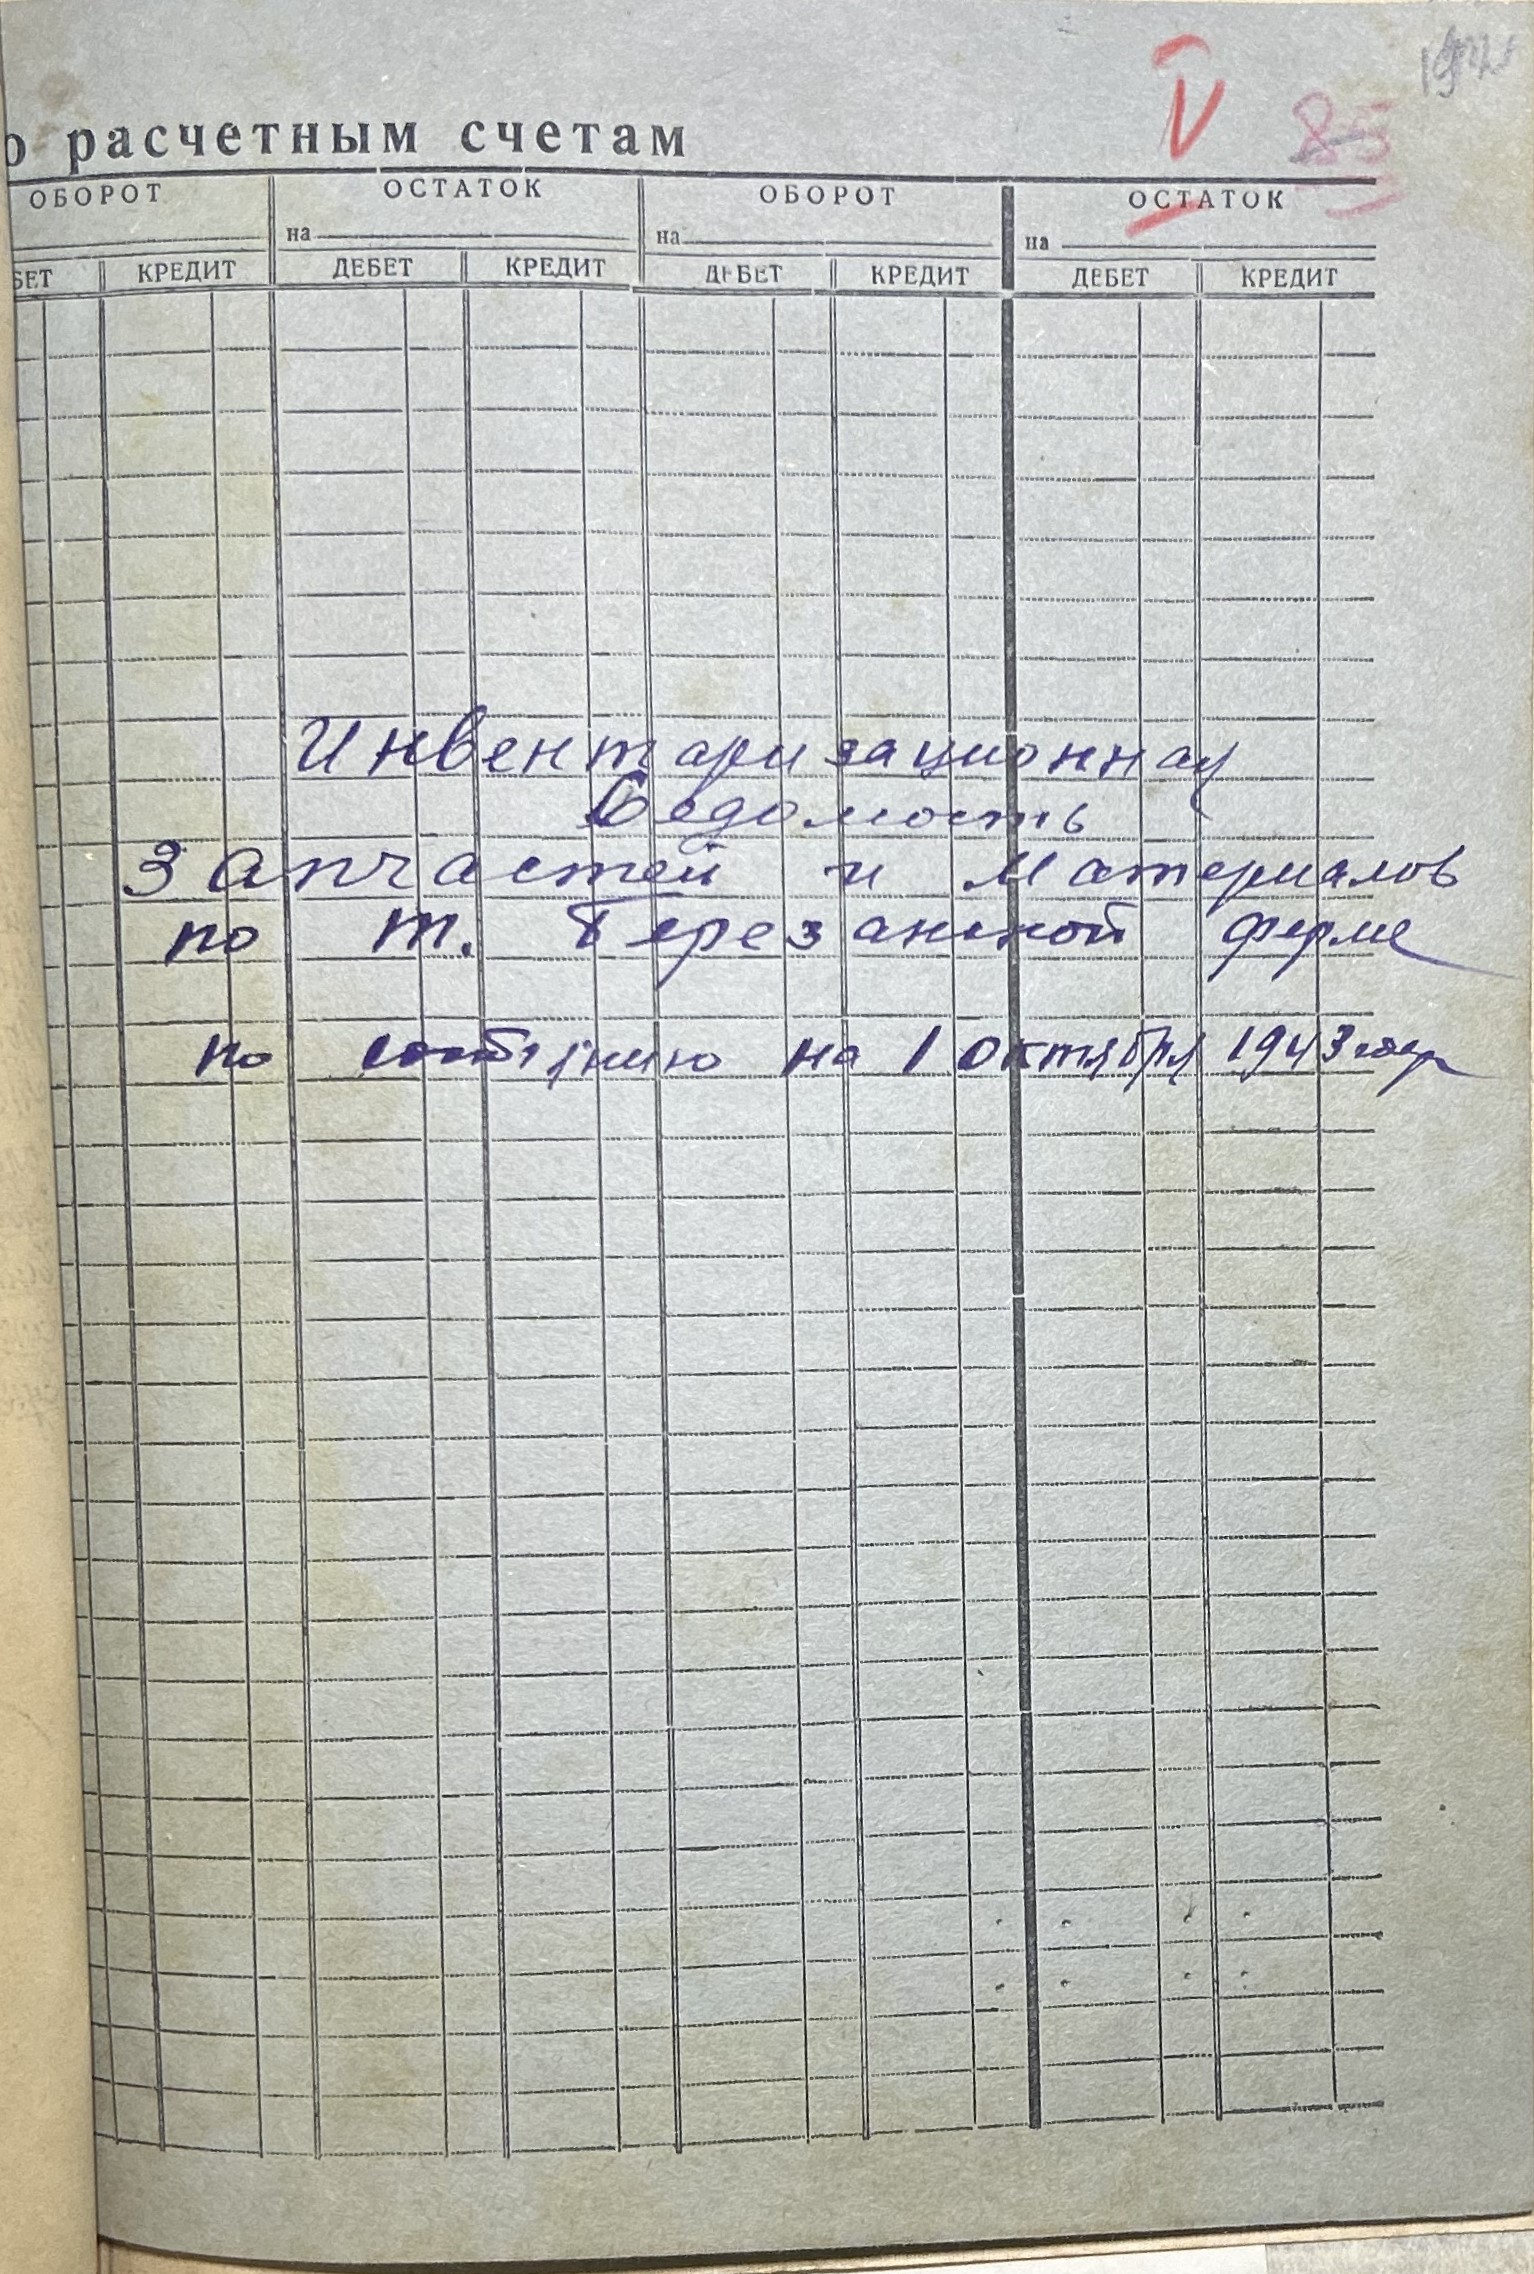 V
85
о расчетным счетам
ОБОРОТ ОСТАТОК ОБОРОТ ОСТАТОК
на на на
БЕТ КРЕДИТ ДЕБЕТ КРЕДИТ ДЕБЕТ КРЕДИТ ДЕБЕТ КРЕДИТ
Инвентаризационная
Ведомость
Запчастей и Материалов
по т. Березанской ферме
по на 1 октября 1943 года